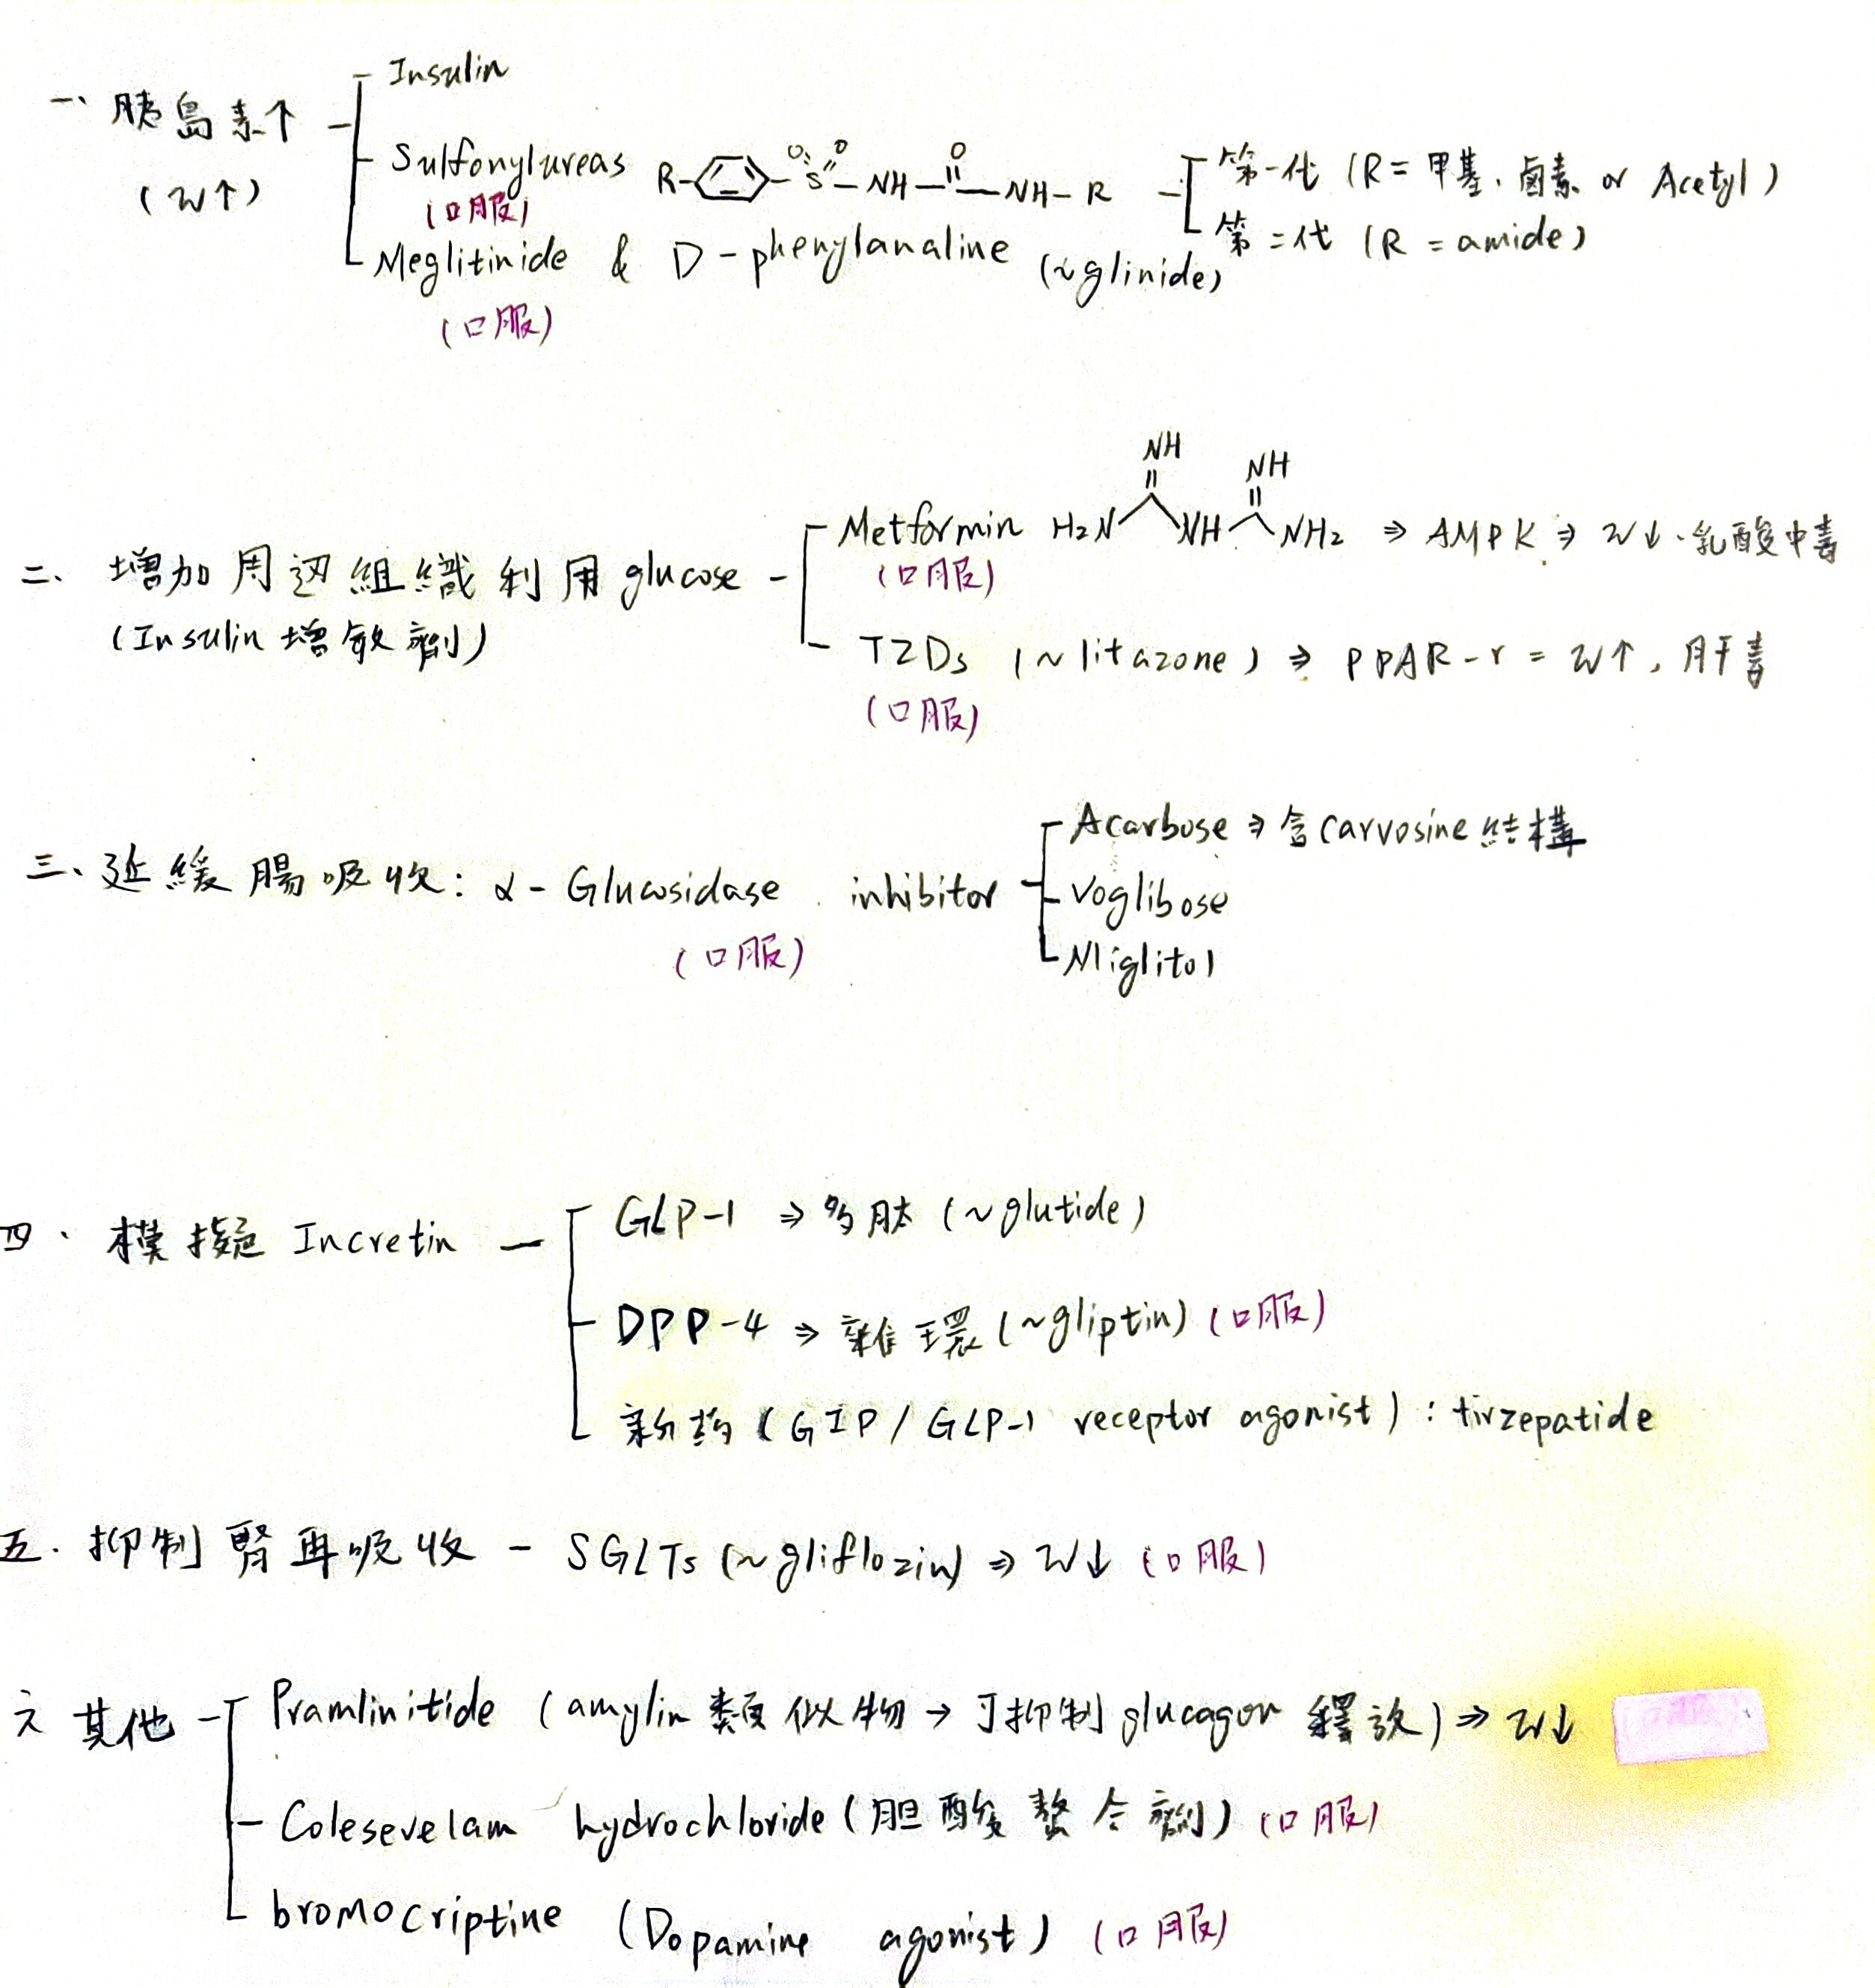 一、胰島素↑
(W↑)
Insulin
Sulfonylureas
(口服)
R- -S(O)(O)-NH-C(=O)-NH-R
第一代 (R=甲基、鹵素 or Acetyl)
第二代 (R = amide)
Meglitinide & D-phenylanaline (~glinide)
(口服)
二、增加周边組織利用glucose
(Insulin增敏劑)
Metformin H2N NH NH NH NH2 ⇒ AMPK ⇒ W↓、乳酸中毒
(口服)
TZDs (~litazone) ⇒ PPAR-r = W↑, 肝毒
(口服)
三、延緩腸吸收: α-Glucosidase inhibitor
(口服)
Acarbose ⇒ 含carvosine結構
Voglibose
Miglitol
四、模擬 Incretin
GLP-1 ⇒ 多肽 (~glutide)
DPP-4 ⇒ 雜環 (~gliptin) (口服)
新药 (GIP / GLP-1 receptor agonist) : tirzepatide
五. 抑制腎再吸收 - SGLTs (~gliflozin) ⇒ W↓ (口服)
六 其他
Pramlinitide (amylin 類似物 → 可抑制 glucagon 釋放) ⇒ W↓
Colesevelam hydrochloride (胆酸螯合劑) (口服)
bromocriptine (Dopamine agonist) (口服)